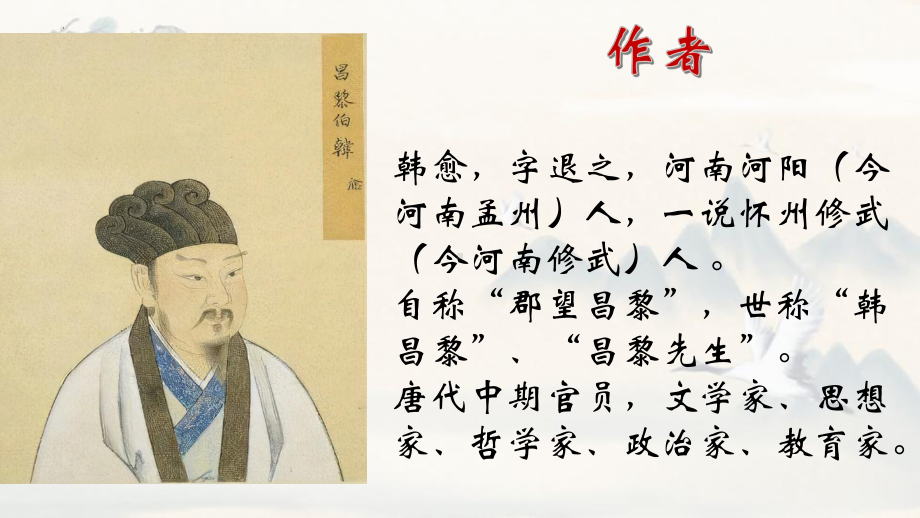 作者
昌黎伯韓愈
韩愈，字退之，河南河阳（今
河南孟州）人，一说怀州修武
（今河南修武）人。
自称“郡望昌黎”，世称“韩
昌黎”、“昌黎先生”。
唐代中期官员，文学家、思想
家、哲学家、政治家、教育家。